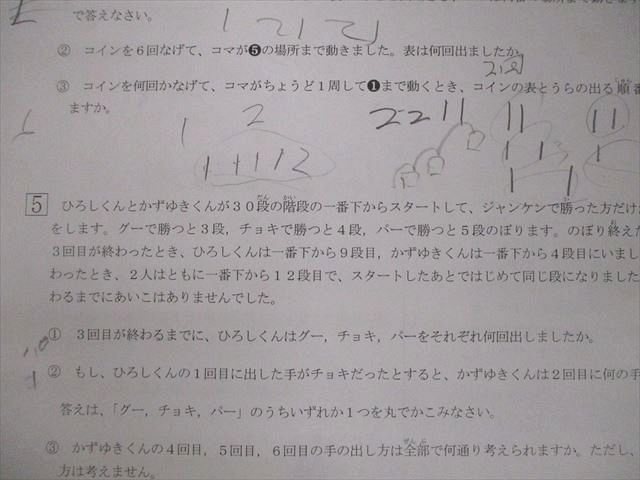 で答えなさい。
1 2 1 2
② コインを6回なげて、コマが❺の場所まで動きました。表は何回出ましたか。
2回
③ コインを何回かなげて、コマがちょうど1周して❶まで動くとき、コインの表とうらの出る順番
ますか。
1 2
2 2 1 1
1 1 1 1 2
5 ひろしくんとかずゆきくんが30段の階段の一番下からスタートして、ジャンケンで勝った方だけ
をします。グーで勝つと3段，チョキで勝つと4段，パーで勝つと5段のぼります。のぼり終えた
3回目が終わったとき、ひろしくんは一番下から9段目，かずゆきくんは一番下から4段目にいまし
わったとき、2人はともに一番下から12段目で、スタートしたあとではじめて同じ段になりました
わるまでにあいこはありませんでした。
① 3回目が終わるまでに、ひろしくんはグー，チョキ，パーをそれぞれ何回出しましたか。
② もし、ひろしくんの1回目に出した手がチョキだったとすると、かずゆきくんは2回目に何の手
答えは、「グー，チョキ，パー」のうちいずれか1つを丸でかこみなさい。
③ かずゆきくんの4回目，5回目，6回目の手の出し方は全部で何通り考えられますか。ただし、
方は考えません。